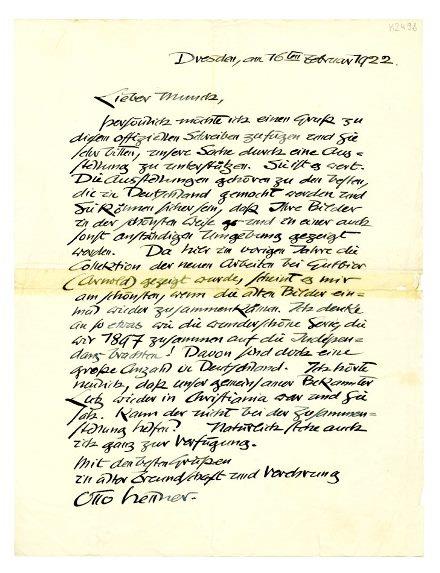 K2496
Dresden, am 16ten Februar 1922.
Lieber Munch,
persönlich möchte ich einen Gruß zu
diesem offiziellen Schreiben zufügen und Sie
sehr bitten, unsere Sache durch eine Aus=
stellung zu unterstützen. Sie ist es wert.
Die Ausstellungen gehören zu den besten,
die in Deutschland gemacht werden und
Sie können sicher sein, daß Ihre Bilder
in der schönsten Weise und in einer auch
sonst anständigen Umgebung gezeigt
werden. Da hier im vorigen Jahre die
Collektion der neuen Arbeiten bei Gutbier
(Arnold) gezeigt wurde, scheint es mir
am schönsten, wenn die alten Bilder ein=
mal wieder zusammenkämen. Ich denke
an so etwas wie die wunderschöne Serie, die
wir 1897 zusammen auf die Indépen=
dants brachten! Davon sind doch eine
große Anzahl in Deutschland. Ich hörte
neulich, daß unser gemeinsamer Bekannter
Lutz wieder in Christiania war und Sie
sah. Kann der nicht bei der Zusammen=
stellung helfen? Natürlich stehe auch
ich ganz zur Verfügung.
Mit den besten Grüßen
in alter Freundschaft und Verehrung
Otto Hettner.